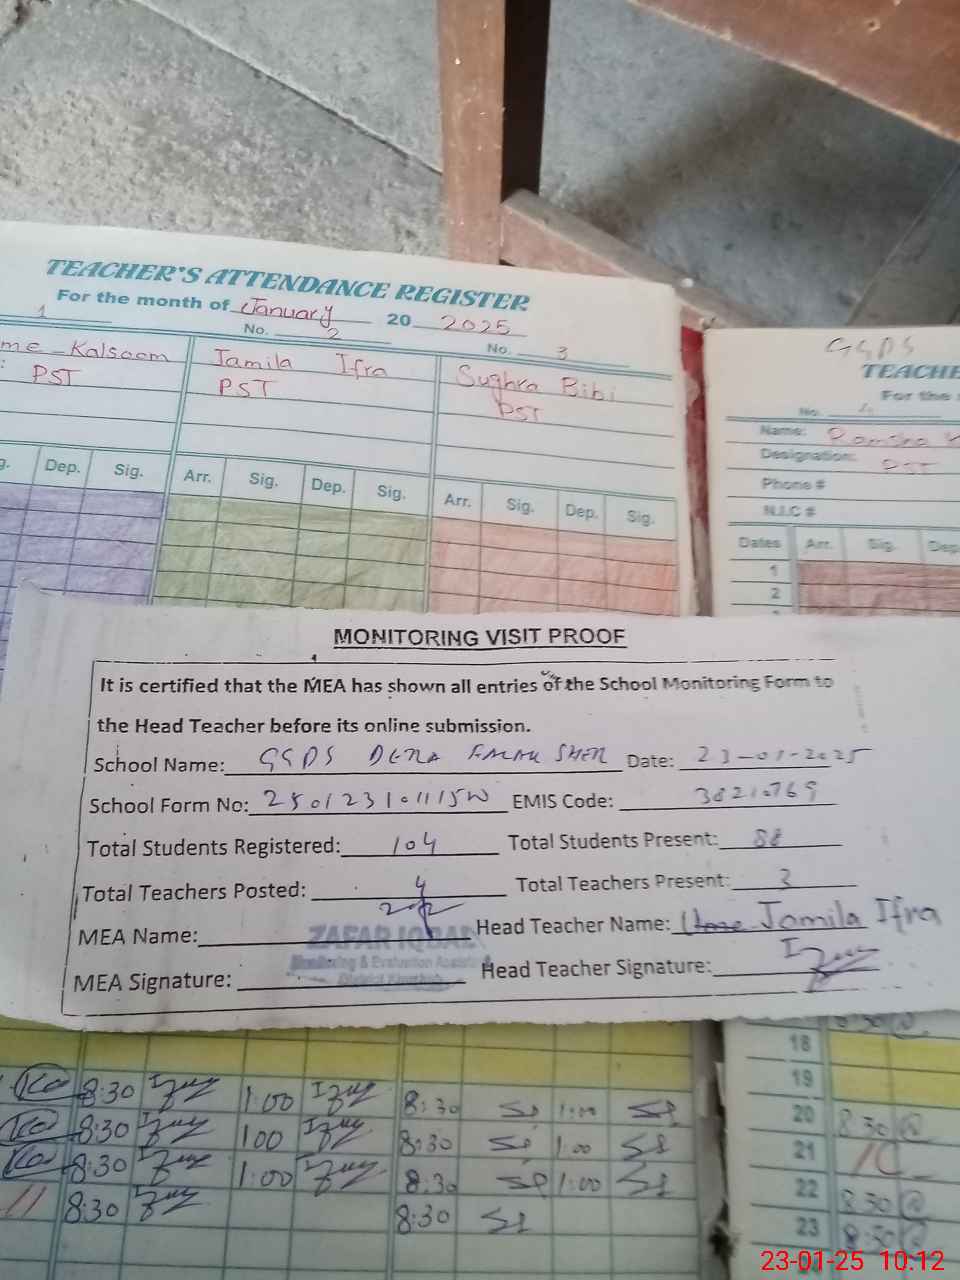 TEACHER'S ATTENDANCE REGISTER
For the month of January 20 2025
1 No. 2 No. 3
me Kalsoom Jamila Ifra Sughra Bibi
PST PST PST
g. Dep. Sig. Arr. Sig. Dep. Sig. Arr. Sig. Dep. Sig.
GGPS
TEACHE
For the
No.
Name: Ramsha
Designation: PST
Phone #
N.I.C #
Dates Arr. Sig. Dep
1
2
MONITORING VISIT PROOF
It is certified that the MEA has shown all entries of the School Monitoring Form to
the Head Teacher before its online submission.
School Name: GGPS DERA FALAK SHER Date: 23-01-2025
School Form No: 250123101115W EMIS Code: 38210769
Total Students Registered: 104 Total Students Present: 88
Total Teachers Posted: 4 Total Teachers Present: 3
MEA Name: ZAFAR IQBAL Head Teacher Name: Jamila Ifra
Monitoring & Evaluation Assistant
MEA Signature: District Head Teacher Signature:
8:30 1:00 8:30 1:00
8:30 100 8:30 1:00
8:30 1:00 8:30 1:00
8:30 8:30
8:30
18
19
20 8:30
21
22 8:30
23 8:30
23-01-25 10:12